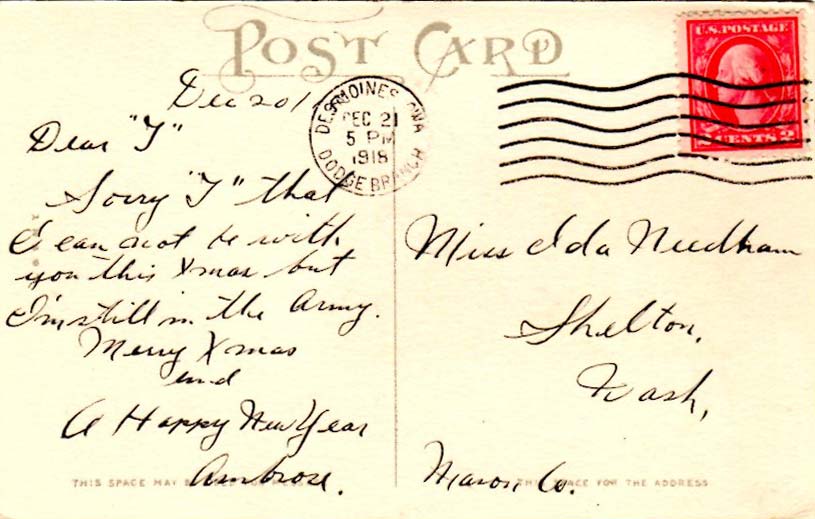 POST CARD
U.S. POSTAGE
2 CENTS 2
DES MOINES, IOWA
DEC 21
5 PM
1918
DODGE BRANCH
Dec 20 1
Dear "I"
Sorry "I" that
I can not be with
you this Xmas but
I'm still in the Army.
Merry Xmas
and
A Happy New Year
Ambrose.
THIS SPACE MAY
Miss Ida Needham
Shelton,
Wash,
Mason Co.
THIS SPACE FOR THE ADDRESS